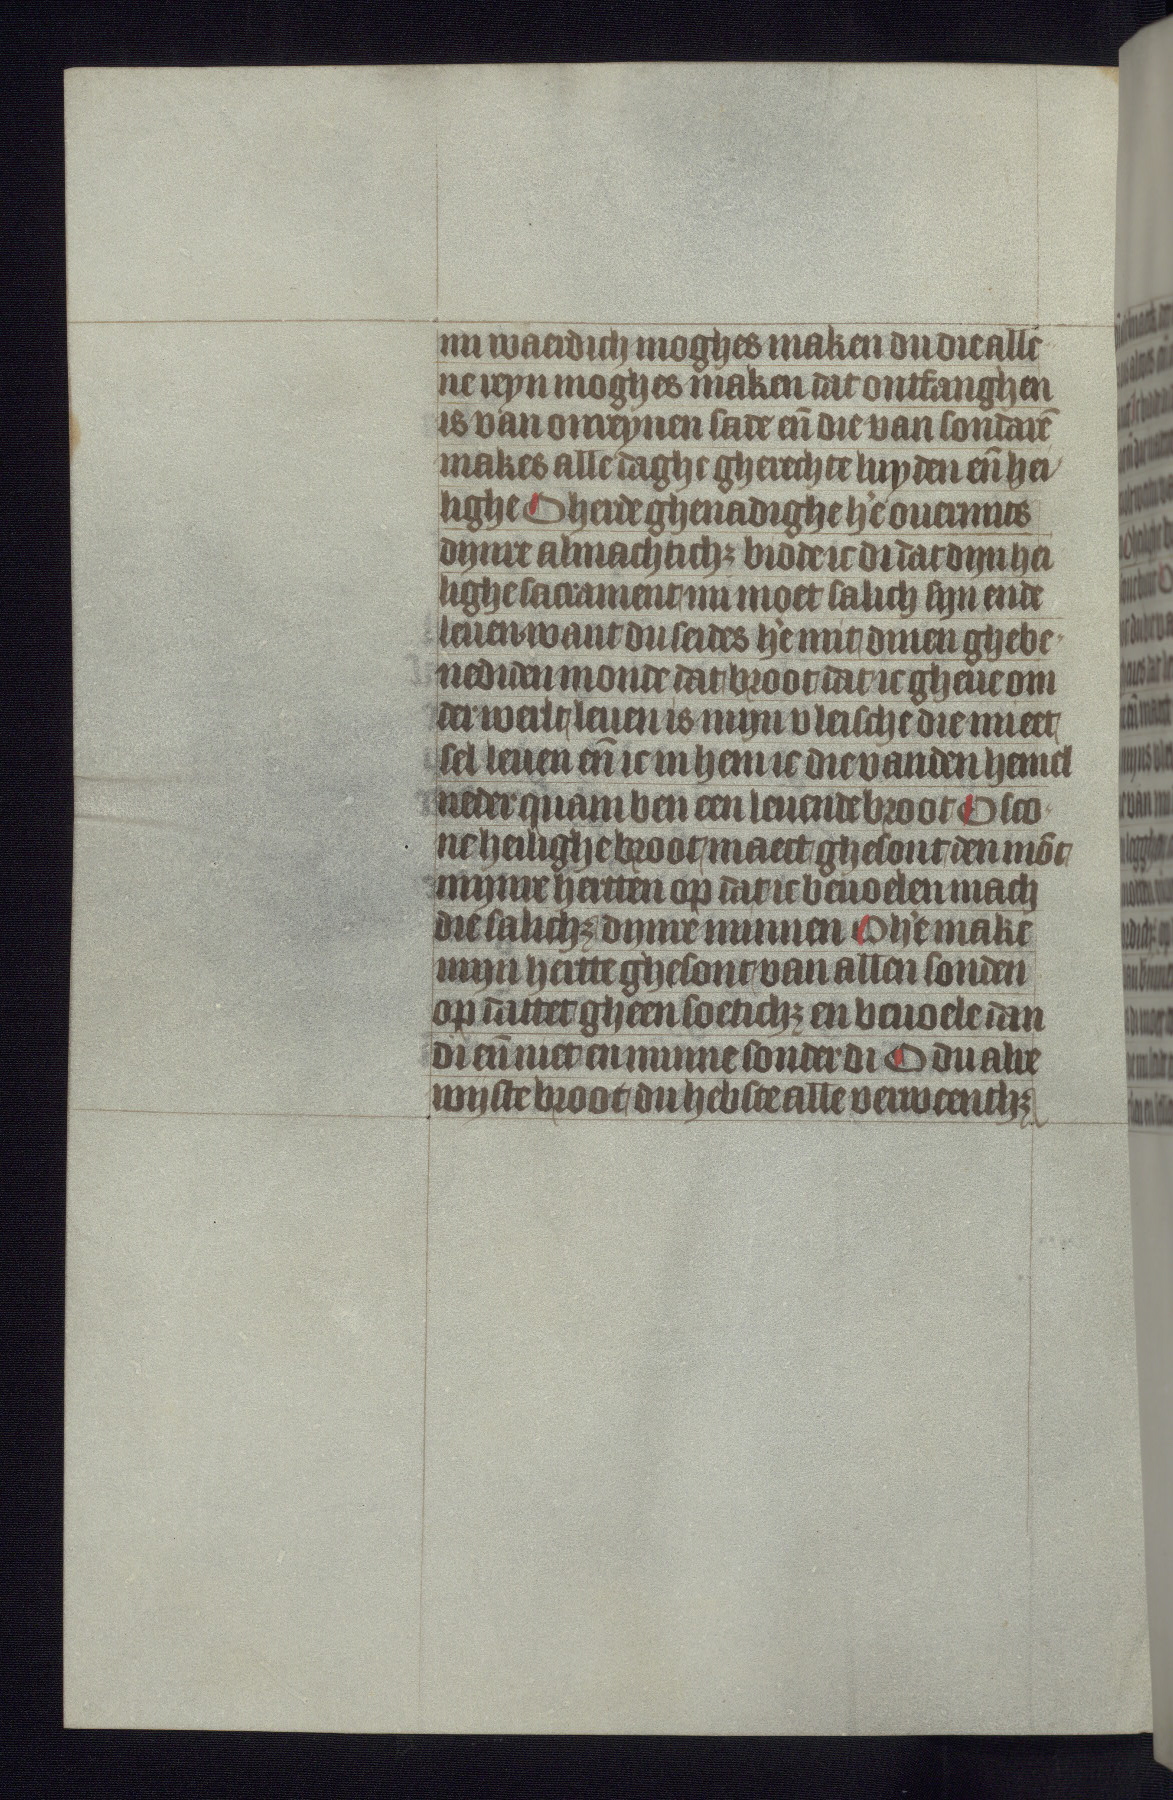 mi waerdich moghes maken du die alle
ne reyn moghes maken dat ontfanghen
is van onreynen sade eñ die van sondarē
makes alle daghe gherechte luyden eñ hei
lighe O herde ghenadighe h'e ouermits
dynre almachtichꝫ bidde ic di dat dijn hei
lighe sacrament mi moet salich sijn ende
leuen want du seides h'e mit dinen ghebe
nediden monde dat broot dat ic gheue om
der werlt leuen is mijn vleische die mi eet
sel leuen eñ ic in hem ic die vanden hemel
neder quam ben een leuende broot O sco
ne heilighe broot maect ghesont den mōt
mijnre hertten op dat ic beuoelen mach
die salichꝫ dijnre minnen O h'e make
mijn hertte ghesont van allen sonden
op dattet gheen soetichꝫ en beuoele dan
di eñ niet en minne sonder di O du alre
wijste broot du hebste alle verweenthꝫ